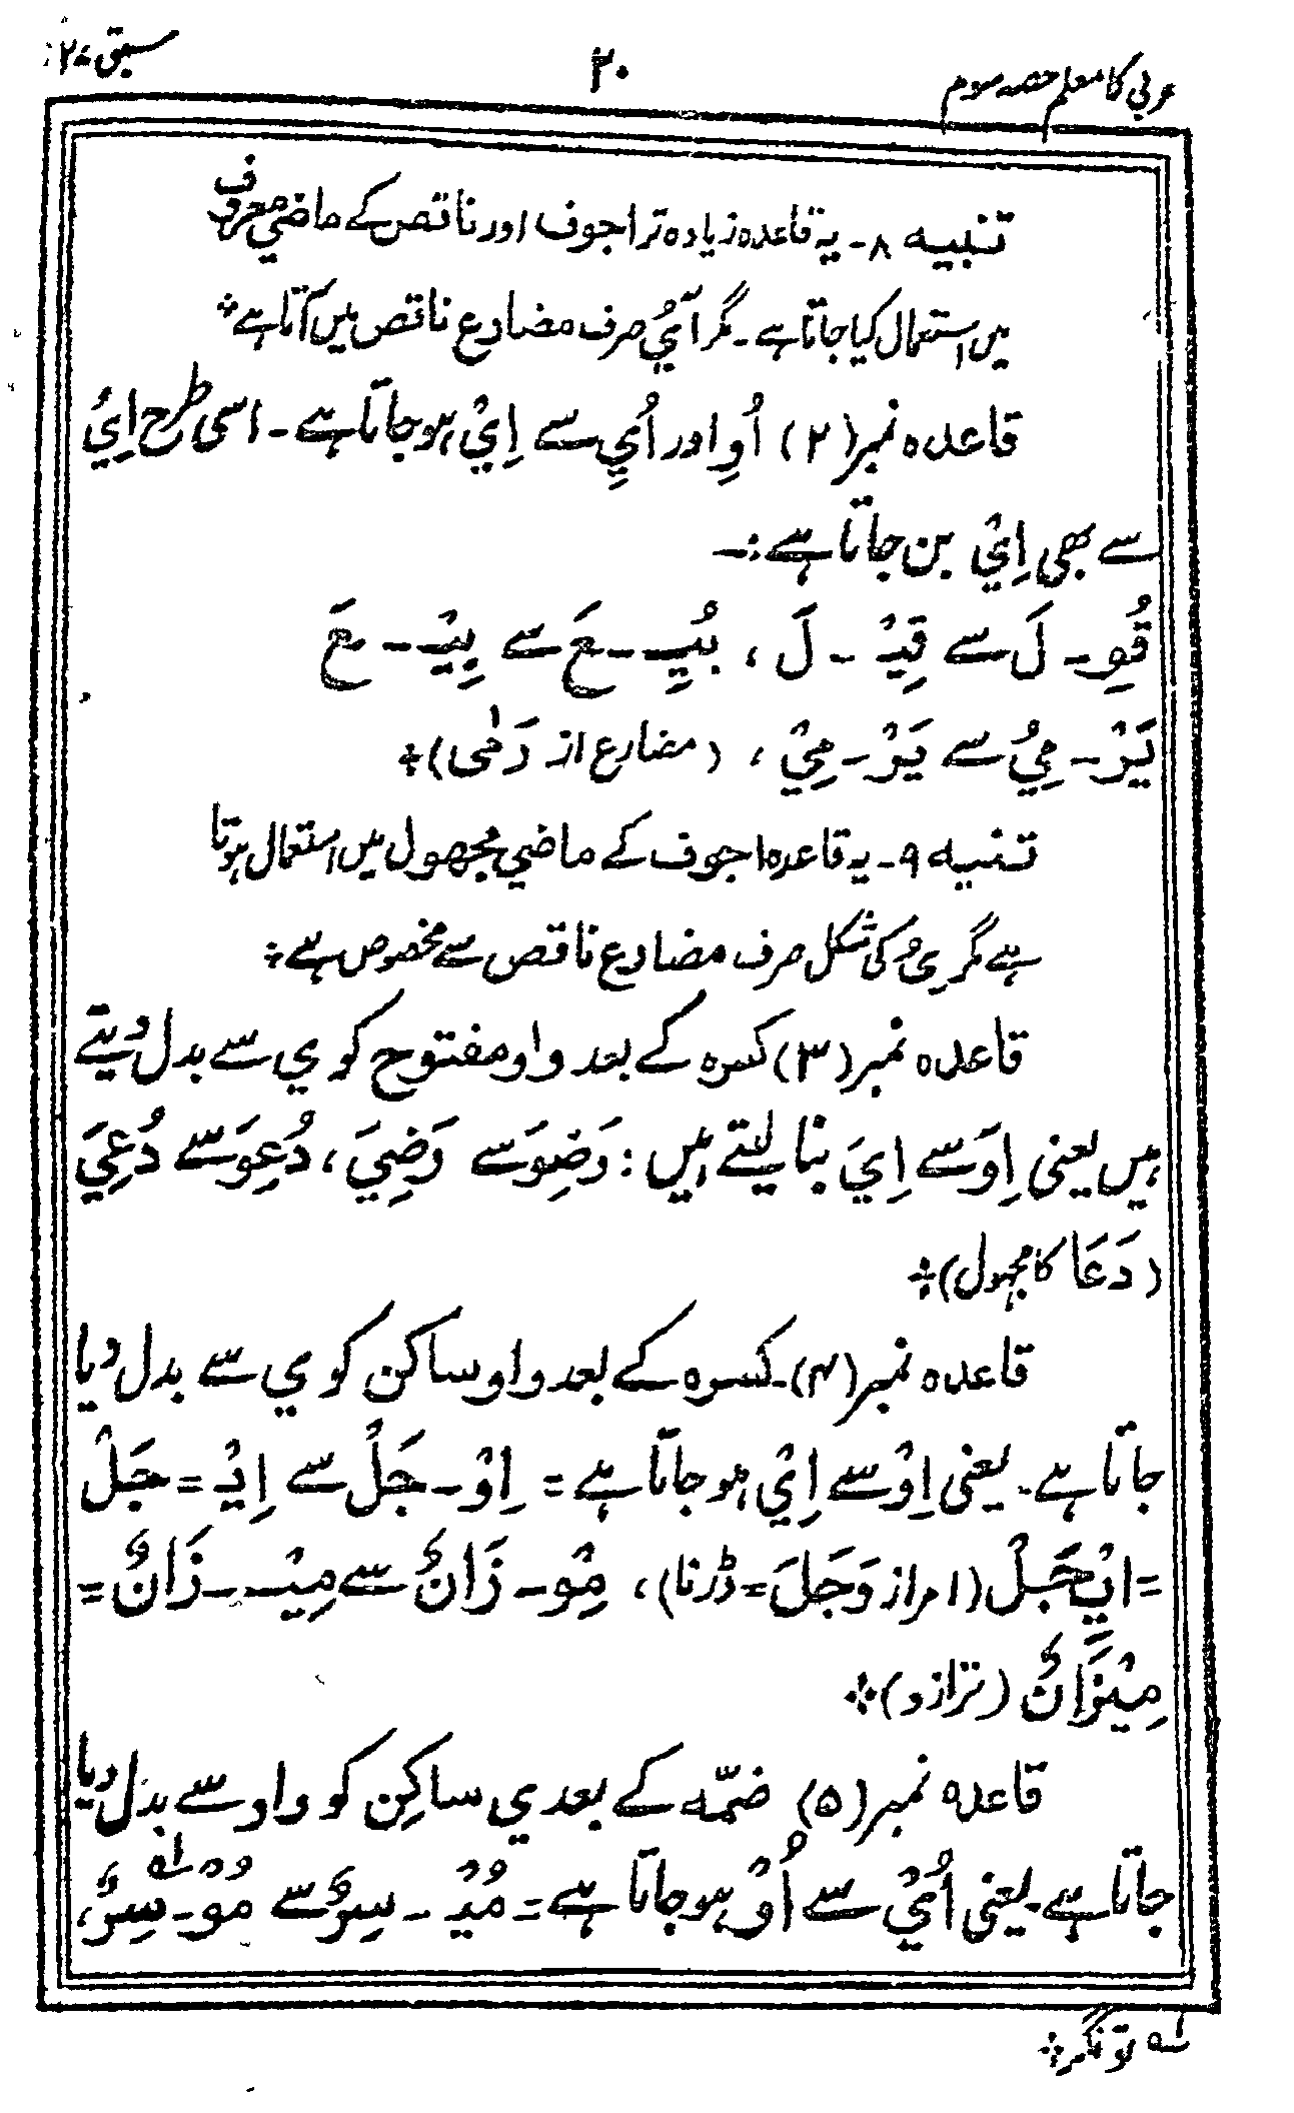 عربی کا معلم حصہ سوم ۲۰ سبق ۲۷
تنبیہ ۸۔ یہ قاعدہ زیادہ تر اجوف اور ناقص کے ماضي معروف
میں استعمال کیا جاتا ہے۔ مگر اَيُ صرف مضارع ناقص میں آتا ہے ؞
قاعدہ نمبر (۲) اُوِ اور اُيِ سے اِيْ ہو جاتا ہے۔ اسی طرح اِيُ
سے بھی اِيْ بن جاتا ہے :۔
قُوِ۔ لَ سے قِيْ ۔ لَ ، بُيِ۔ عَ سے بِيْ۔ عَ
يَرْ۔ مِيُ سے يَرْ۔ مِيْ ، (مضارع از رَمٰی) ؞
تنبیہ ۹۔ یہ قاعدہ اجوف کے ماضي مجھول میں استعمال ہوتا
ہے مگر ـِيُ کی شکل صرف مضارع ناقص سے مخصوص ہے ؞
قاعدہ نمبر (۳) کسرہ کے بعد واو مفتوح کو ي سے بدل دیتے
ہیں یعنی اِوَ سے اِيَ بنا لیتے ہیں : رَضِوَ سے رَضِيَ ، دُعِوَ سے دُعِيَ
(دَعَا کا مجہول) ؞
قاعدہ نمبر (۴)۔ کسرہ کے بعد واو ساکن کو ي سے بدل دیا
جاتا ہے۔ یعنی اِوْ سے اِيْ ہو جاتا ہے = اِوْ۔ جَلْ سے اِيْ = جَلْ
= ایْجَلْ (امر از وَجَلَ = ڈرنا) ، مِوْ۔ زَانٌ سے مِيْ۔ زَانٌ =
مِيْزَانٌ (ترازو) ؞
قاعدہ نمبر (۵) ضمّہ کے بعد ي ساکِن کو واو سے بدل دیا
جاتا ہے۔ یعنی اُيْ سے اُوْ ہو جاتا ہے = مُيْ ۔ سِرٌ سے مُوْ۔ سِرٌ ۱ه ،
۱ه تونگر ؞